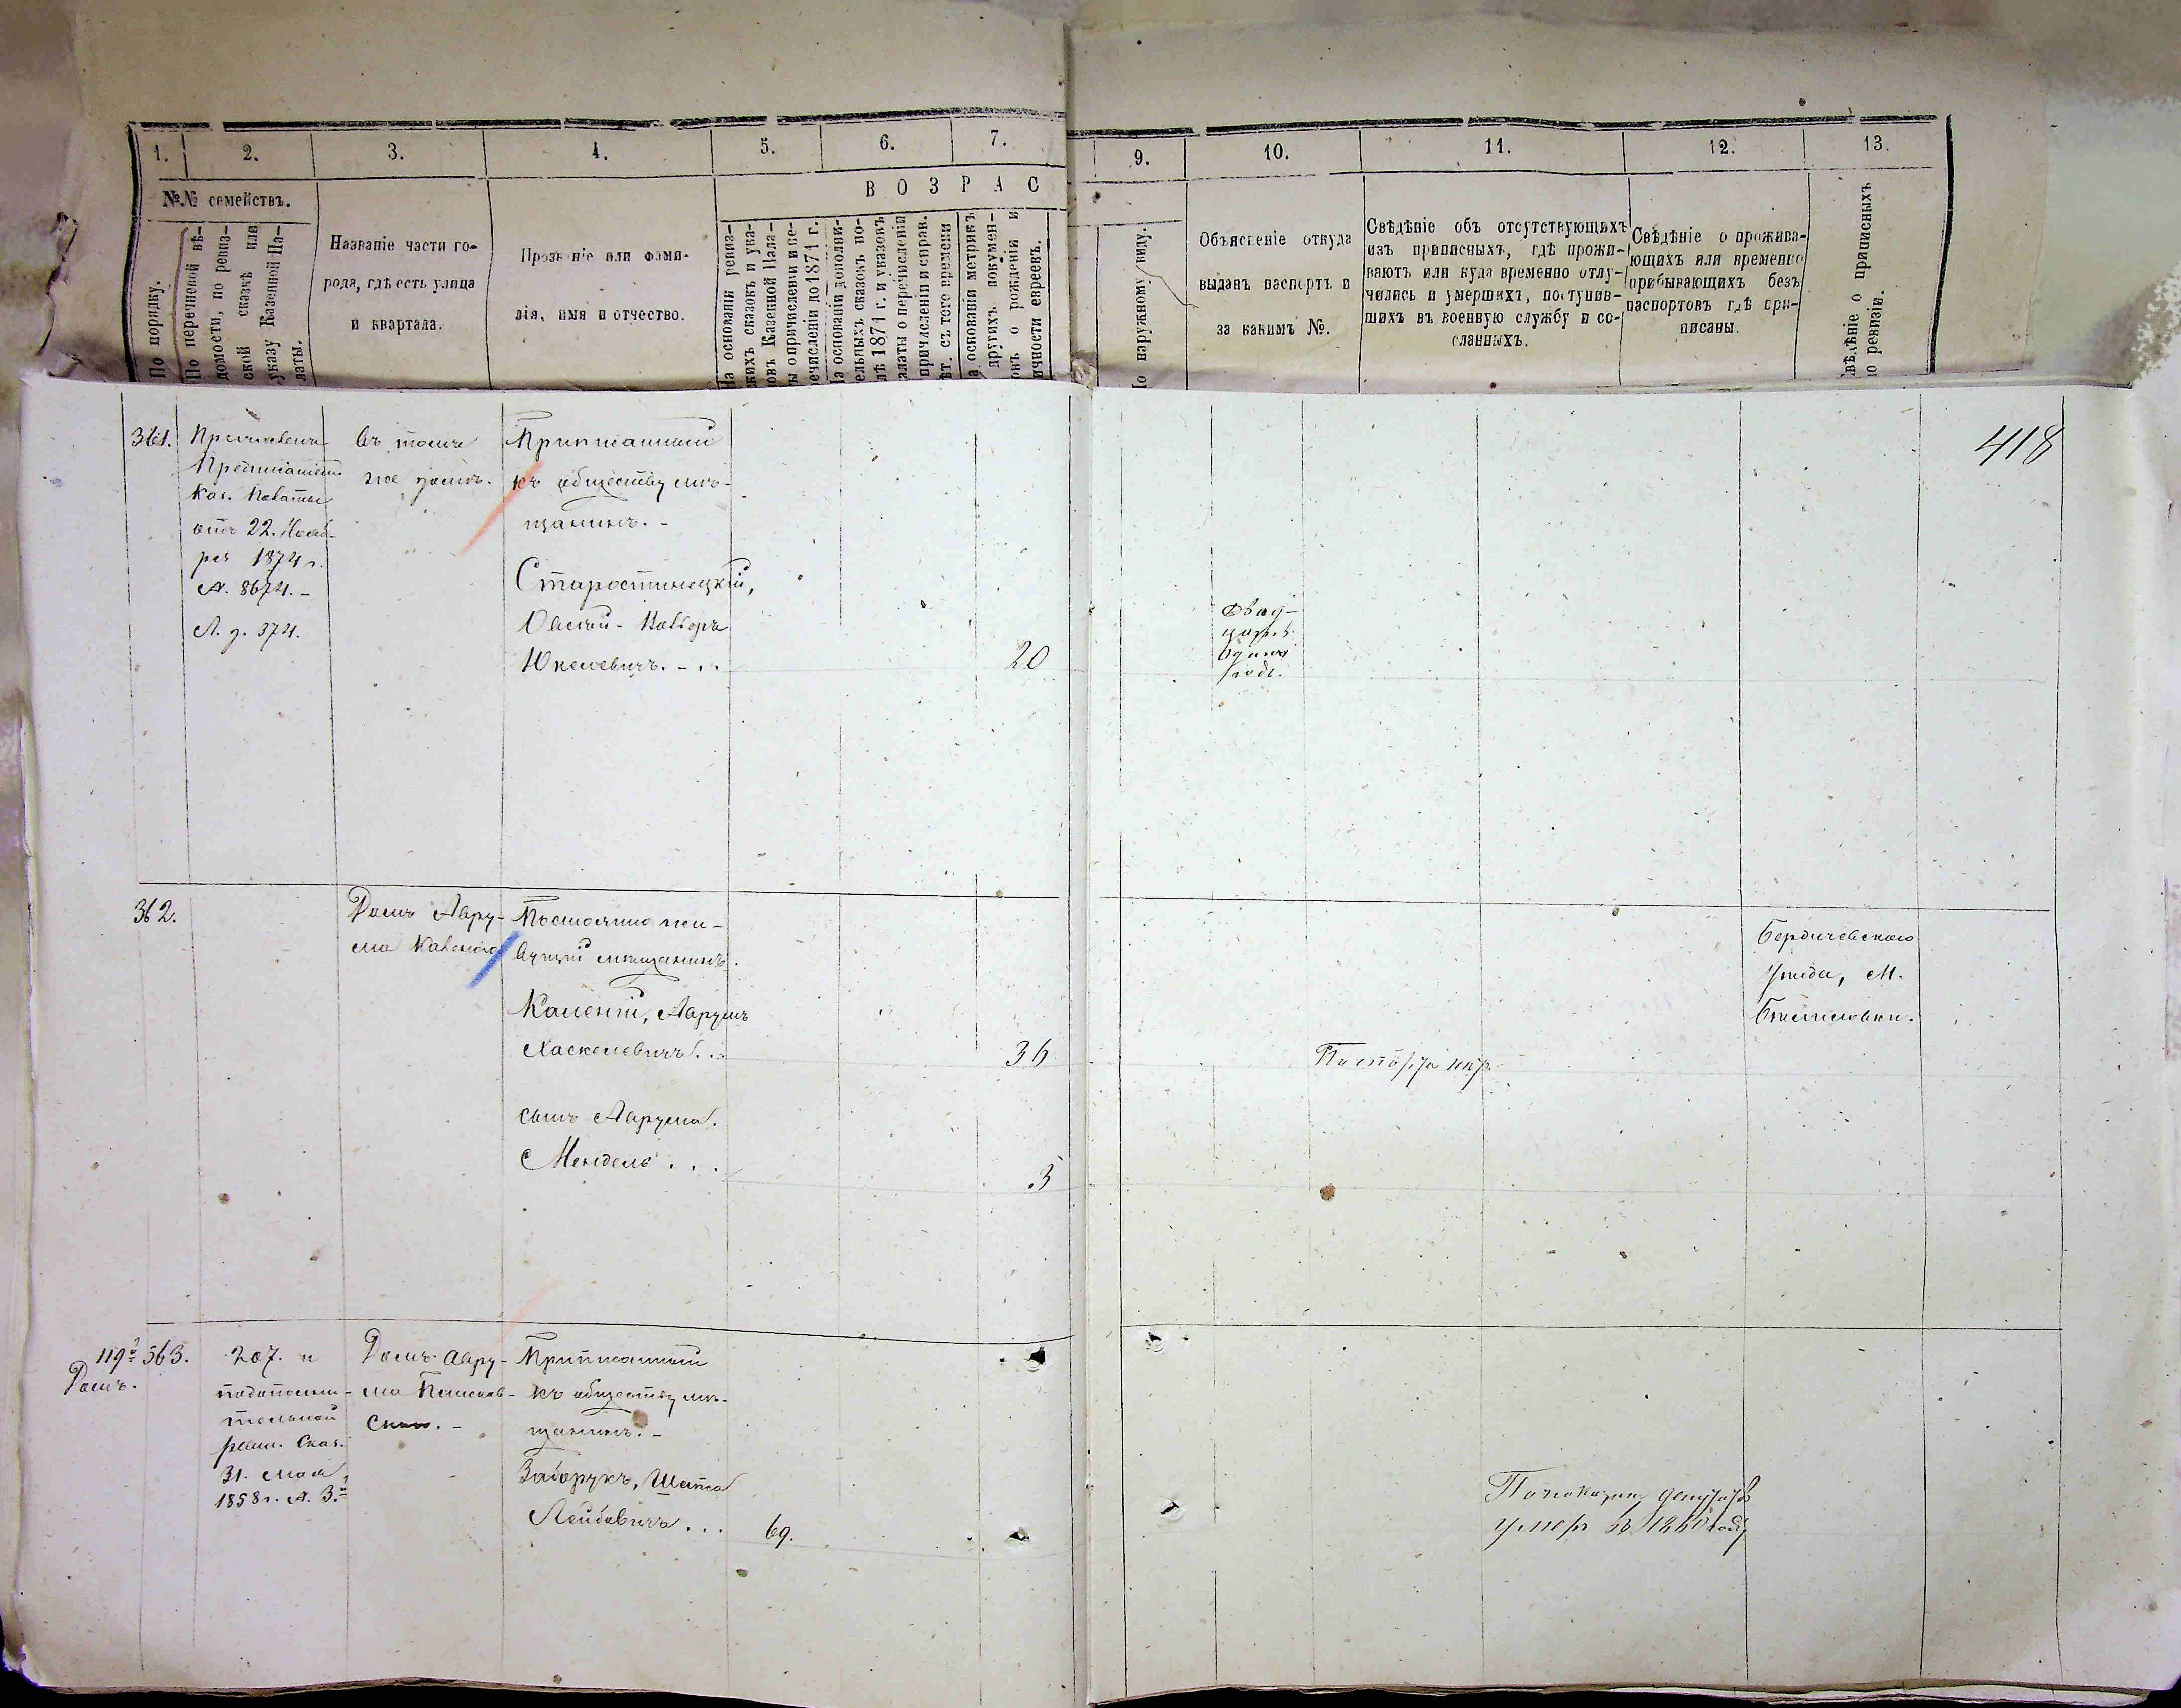 1.
2.
3.
4.
5.
6.
7.
9.
10.
11.
12.
13.
ВОЗРАС
№№ семействъ.
По порядку.
По перечневой вѣ-
домости, по ревиз-
ской сказкѣ или
указу Казенной Па-
латы.
Названіе части го-
рода, гдѣ есть улица
и квартала.
Прозваніе или фами-
лія, имя и отчество.
На основаніи ревиз-
скихъ сказокъ и ука-
зовъ Казенной Пала-
ты о причисленіи и пе-
речисленіи до 1871 г.
На основаніи дополни-
тельныхъ сказокъ по-
слѣ 1871 г. и указовъ
палаты о перечисленіи
причисленіи и справ.
лѣт. съ того времени
На основаніи метрикъ
и другихъ докумен-
товъ о рожденіи и
личности евреевъ.
По наружному виду.
Объясненіе откуда
выданъ паспортъ и
за какимъ №.
Свѣдѣніе объ отсутствующихъ
изъ приписныхъ, гдѣ прожи-
ваютъ или куда временно отлу-
чились и умершихъ, поступив-
шихъ въ военную службу и со-
сланныхъ.
Свѣдѣніе о прожива-
ющихъ или временно
прибывающихъ безъ
паспортовъ гдѣ при-
писаны.
Свѣдѣніе о приписныхъ
по ревизіи.
418
361.
Причисленъ
Предписаніемъ
Каз. Палаты
отъ 22. Нояб-
ря 1874 г.
№. 8674.-
Л. д. 374.
въ томъ
же домѣ.
Приписанный
къ обществу мѣ-
щанинъ.-
Старостинецкій,
Юкелевичъ.-..
20
Двад-
цать
одинъ
годъ.
362.
Домъ Авру-
ма Каменого
Постоянно жи-
вущій мѣщанинъ.
Каменій, Аврумъ
Хаскелевичъ...
36
сынъ Аврума.
Мендель...
3
Бердичевского
Уѣзда, М.
119й
Домъ.
363.
207. и
дополни-
тельной
ревиз. Сказ.
31. мая
1858 г. №. 3.й
Домъ Авру-
Приписанный
къ обществу мѣ-
щанинъ.-
Заборукъ, Шапса
Лейбовичъ...
69.
По показанію депутатовъ
умеръ въ 1860 году